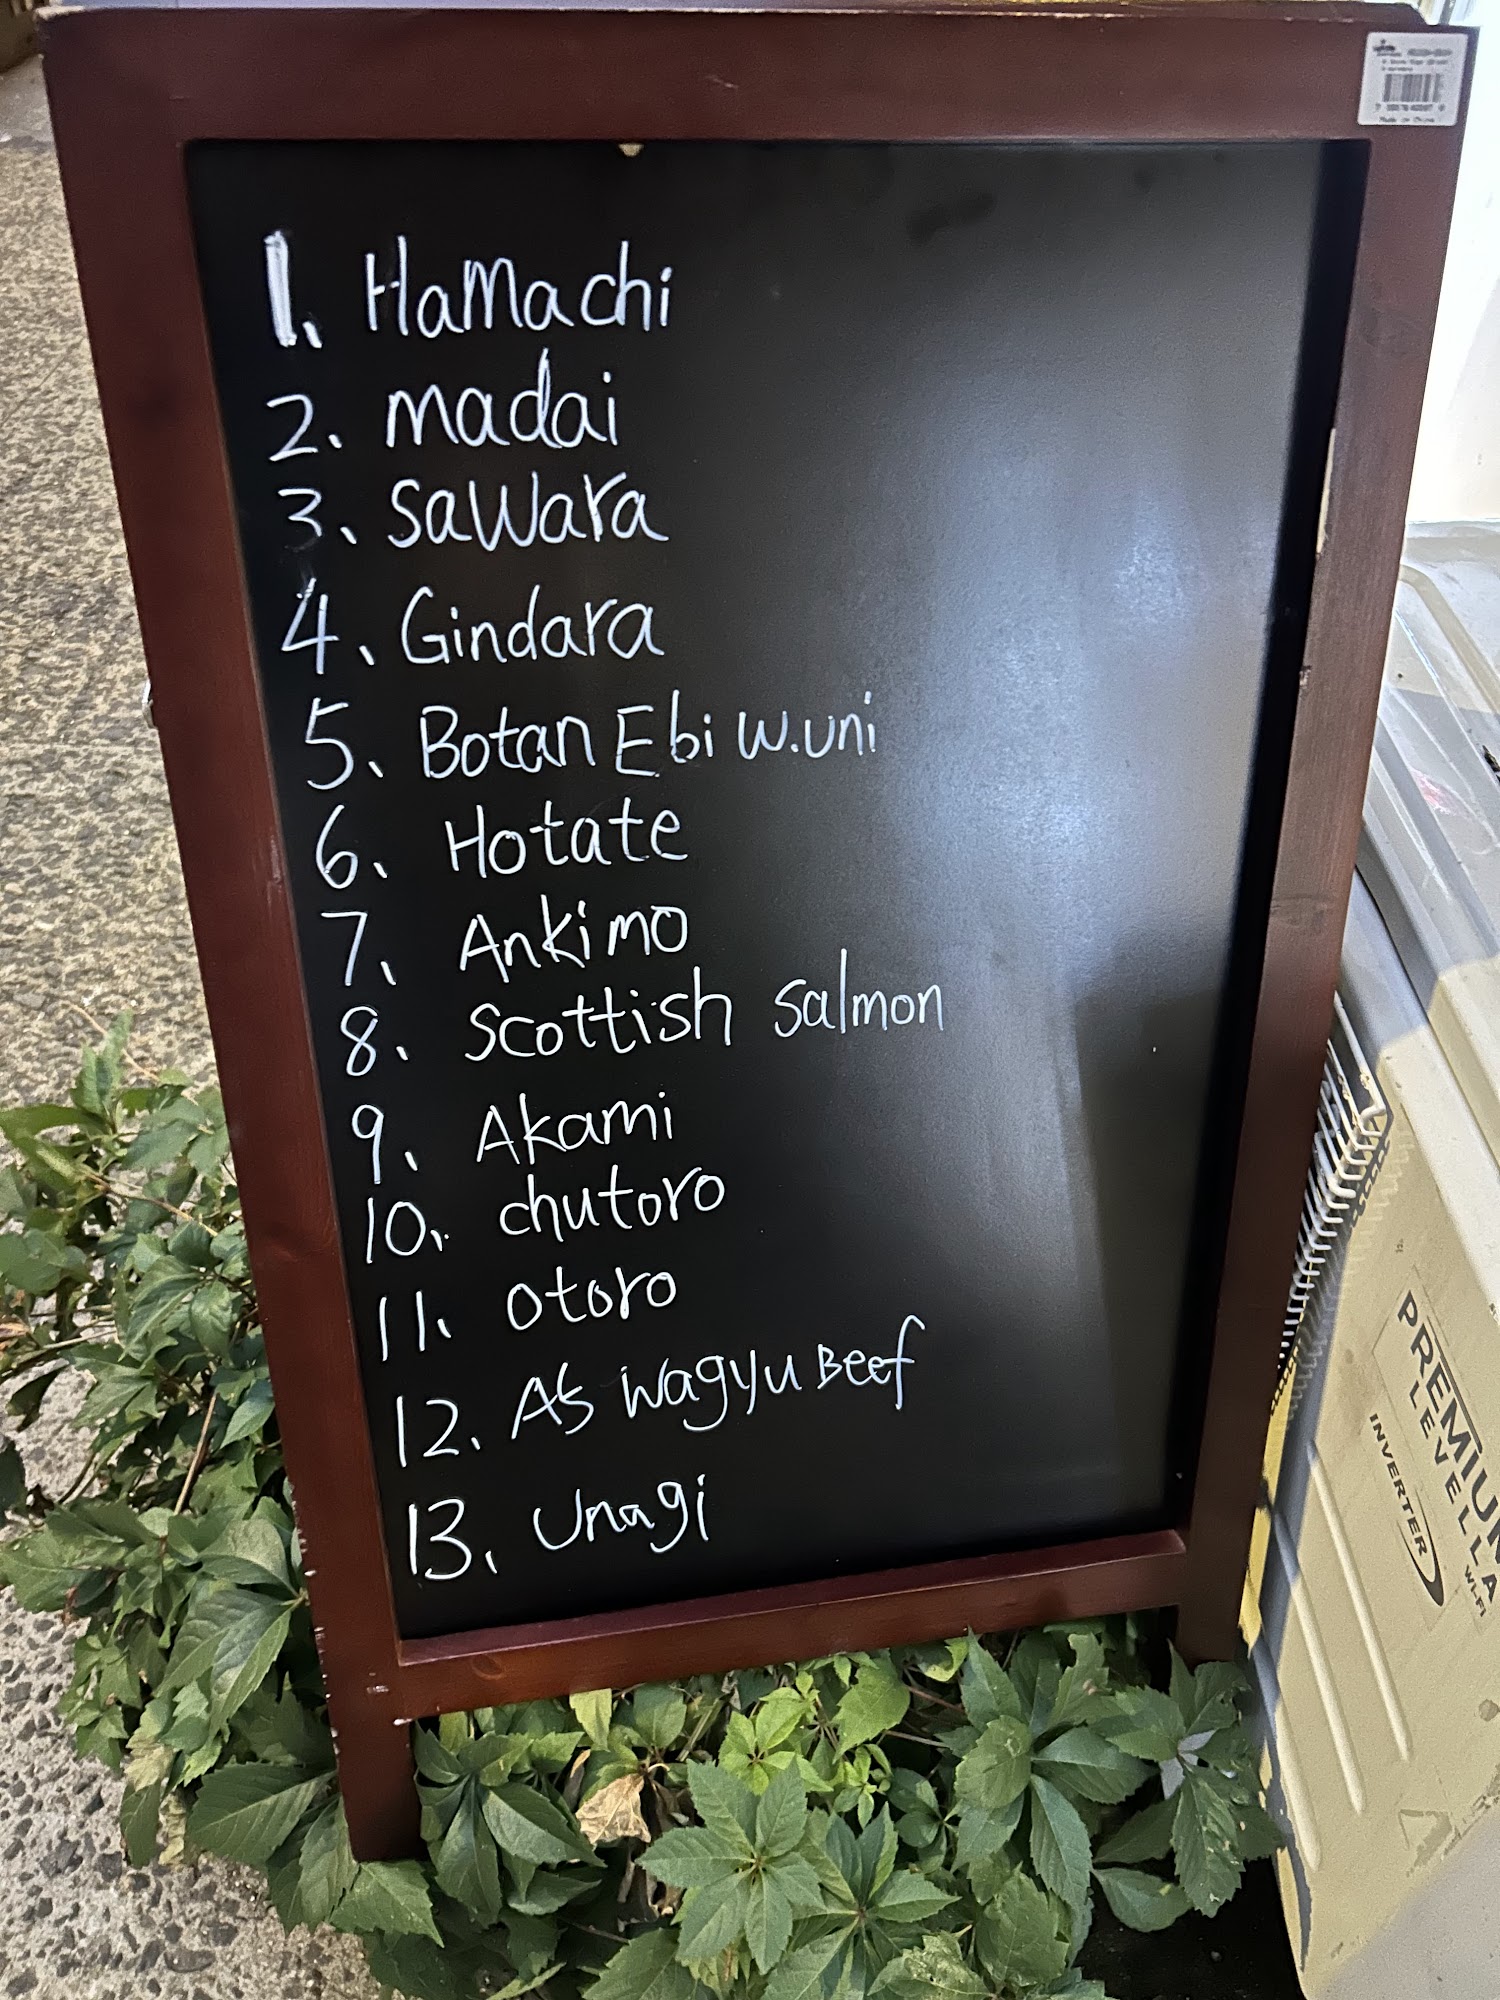 1. Hamachi
2. madai
3. Sawara
4. Gindara
5. Botan Ebi w.uni
6. Hotate
7. Ankimo
8. Scottish salmon
9. Akami
10. chutoro
11. otoro
12. A5 wagyu Beef
13. Unagi
Made in China
PREMIUM
LEVELLA
INVERTER
Wi-Fi